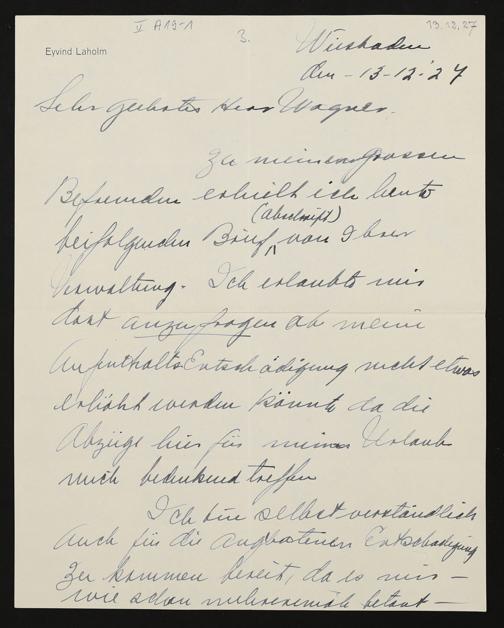 V A19-1
3.
13.12.27
Eyvind Laholm
Wiesbaden
den - 13-12-'27
Sehr geehrter Herr Wagner.
Zu meinem grossen
Befremden erhielt ich heute
(Abschrift)
beifolgenden Brief, von Ihrer
Verwaltung. Ich erlaubte mir
dort anzufragen ob meine
Aufenthalts Entschädigung nicht etwas
erhöht werden könnte da die
Abzüge hier für meinen Urlaub
mich bedeutend treffen
Ich bin selbstverständlich
auch für die angbotenen Entschädigung
zu kommen bereit, da es mir –
wie schon mehreremale betont –